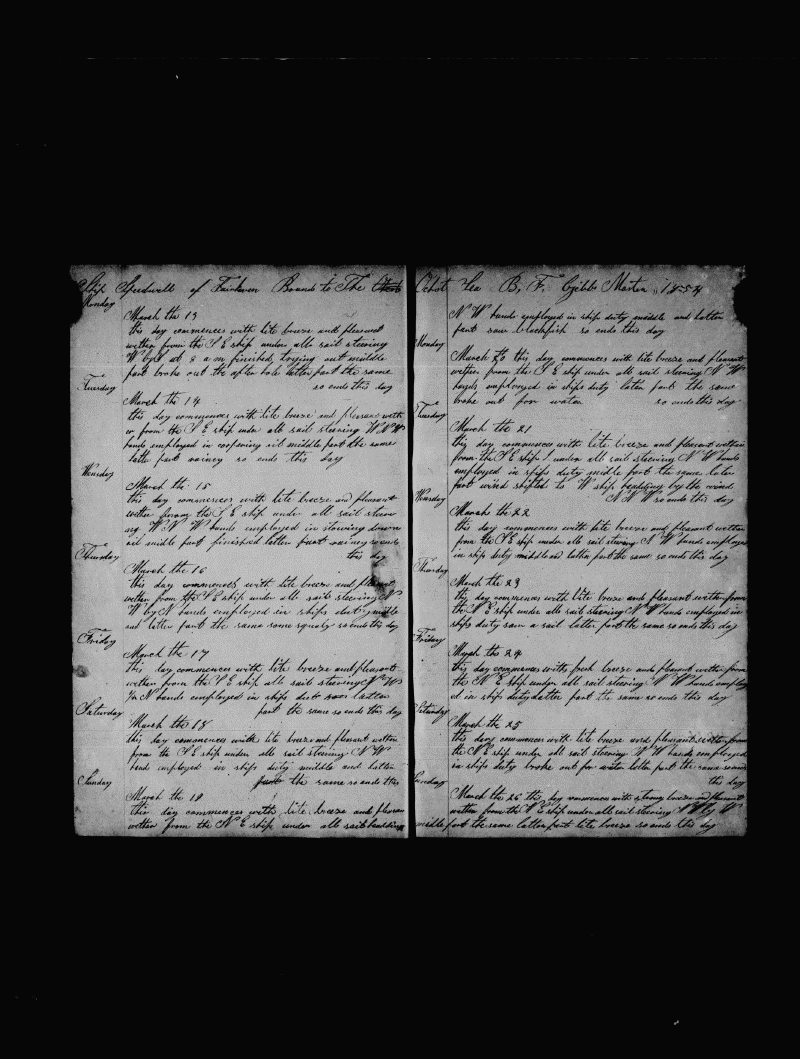 Ship Speedwell of Fairhaven Bound to The
Monday
March the 13
this day commences with lite breeze and pleasant
wether from the S E ship under all sail steering
W by S at 8 a m finished trying out middle
part broke out the after hole latter part the same
so ends this day
Tuesday
March the 14
this day commences with lite breeze and pleasant weth
er from the S E ship under all sail steering W N W
hands employed in coopering oil middle part the same
latte part rainey so ends this day
Wensday
March the 15
this day commences with lite breeze and pleasant
wether from the S E ship under all sail steer
ing W N W hands employed in stowing down
oil midle part finished latter part rainey so ends
this day
Thursday
March the 16
this day commences with lite breeze and pleasant
wether from the S E ship under all sail steering N
W by N hands employed in ships duty midle
and latter part the same some squaly so ends this day
Friday
March the 17
this day commences with lite breeze and pleasant
wether from the S E ship all sail steering N W
hands employed in ships latter
part the same so ends this day
Saturday
March the 18
this day commences with lite breeze and pleasant
from the S E ship under all sail steering N W
hands employed in ships duty middle and latter
part the same so ends this
Sunday
March the 19
this day commences with lite breeze and pleasan
wether from the N E ship under all sail heading
Ochot Sea B, F, Gibbs Master 1854
N W hands employed in ship duty middle and latter
part saw blackfish so ends this day
Monday
March 20 this day commences with lite breeze and pleasant
wether from the S E ship under all sail steering N W
hands employed in ships duty later part the same
broke out for water so ends this day
Tuesday
March the 21
this day commences with lite breeze and pleasant wether
from the S E ship under all sail steering N W hands
employed in ships duty midle part the same later
part wind shifted to W ship heading by the wind
N N W so ends this day
Wensday
March the 22
this day commences with lite breeze and pleasant wether
from the S E ship under all sail steering N W hands employed
in ship duty middle and latter part the same so ends this day
Thursday
March the 23
this day commences with lite breeze and pleasant wether from
the S E ship under all sail steering N W hands employed in
ships duty saw a sail latter part the same so ends this day
Friday
March the 24
this day commences with fresh breeze and pleasant wether from
the N E ship under all sail steering N W hands employ
ed in ships duty latter part the same so ends this day
Saturday
March the 25
this day commences with lite breeze and pleasant wether from
the N E ship under all sail steering N W hands employed
in ships duty broke out for water latter part the same so ends
this day
Sunday
March the 26 this day commences with strong breeze and pleasant
wether from the N E ship under all sail steering N W by W
middle part the same latter part lite breeze so ends this day